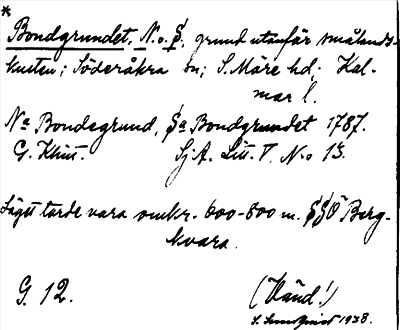 *
Bondgrundet, N. o. S., grund utanför smålands-
kusten; Söderåkra sn; S. Möre hd; Kal-
mar l.
Na Bondegrund, Sa Bondgrundet 1787.
G. Klint. Sj.A. Litt. V. No 13.
Läget torde vara omkr. 600-800 m. SSO Berg-
kvara.
G. 12. (Vänd!)
1938.